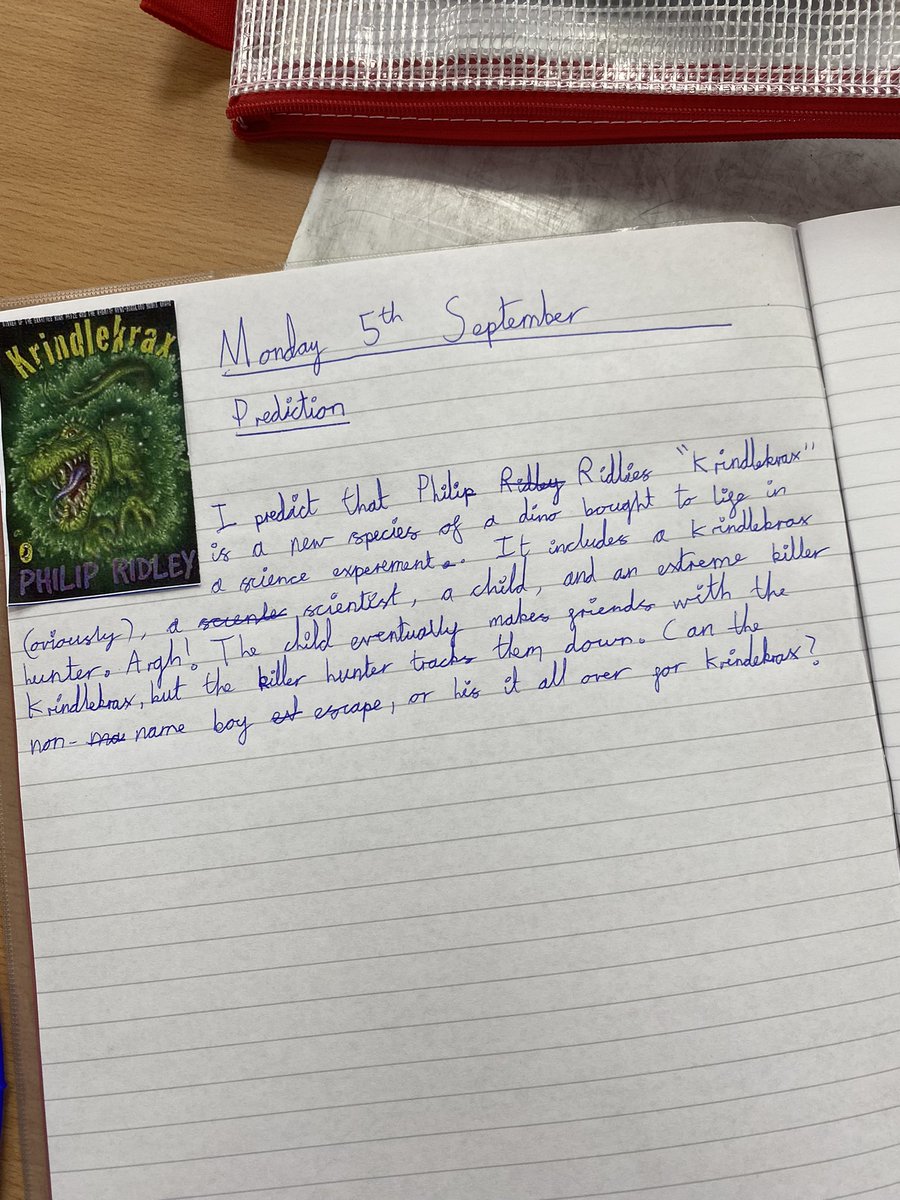 Krindlekrax
PHILIP RIDLEY
Monday 5th September
Prediction
I predict that Philip Ridley Ridlies "Krindlekrax"
is a new species of a dino bought to life in
a science experement. It includes a Krindlekrax
(oviously), a scientist, a child, and an extreme killer
hunter. Argh! The child eventually makes friends with the
Krindlekrax, but the killer hunter tracks them down. Can the
non-name boy escape, or his it all over for Krindekrax?